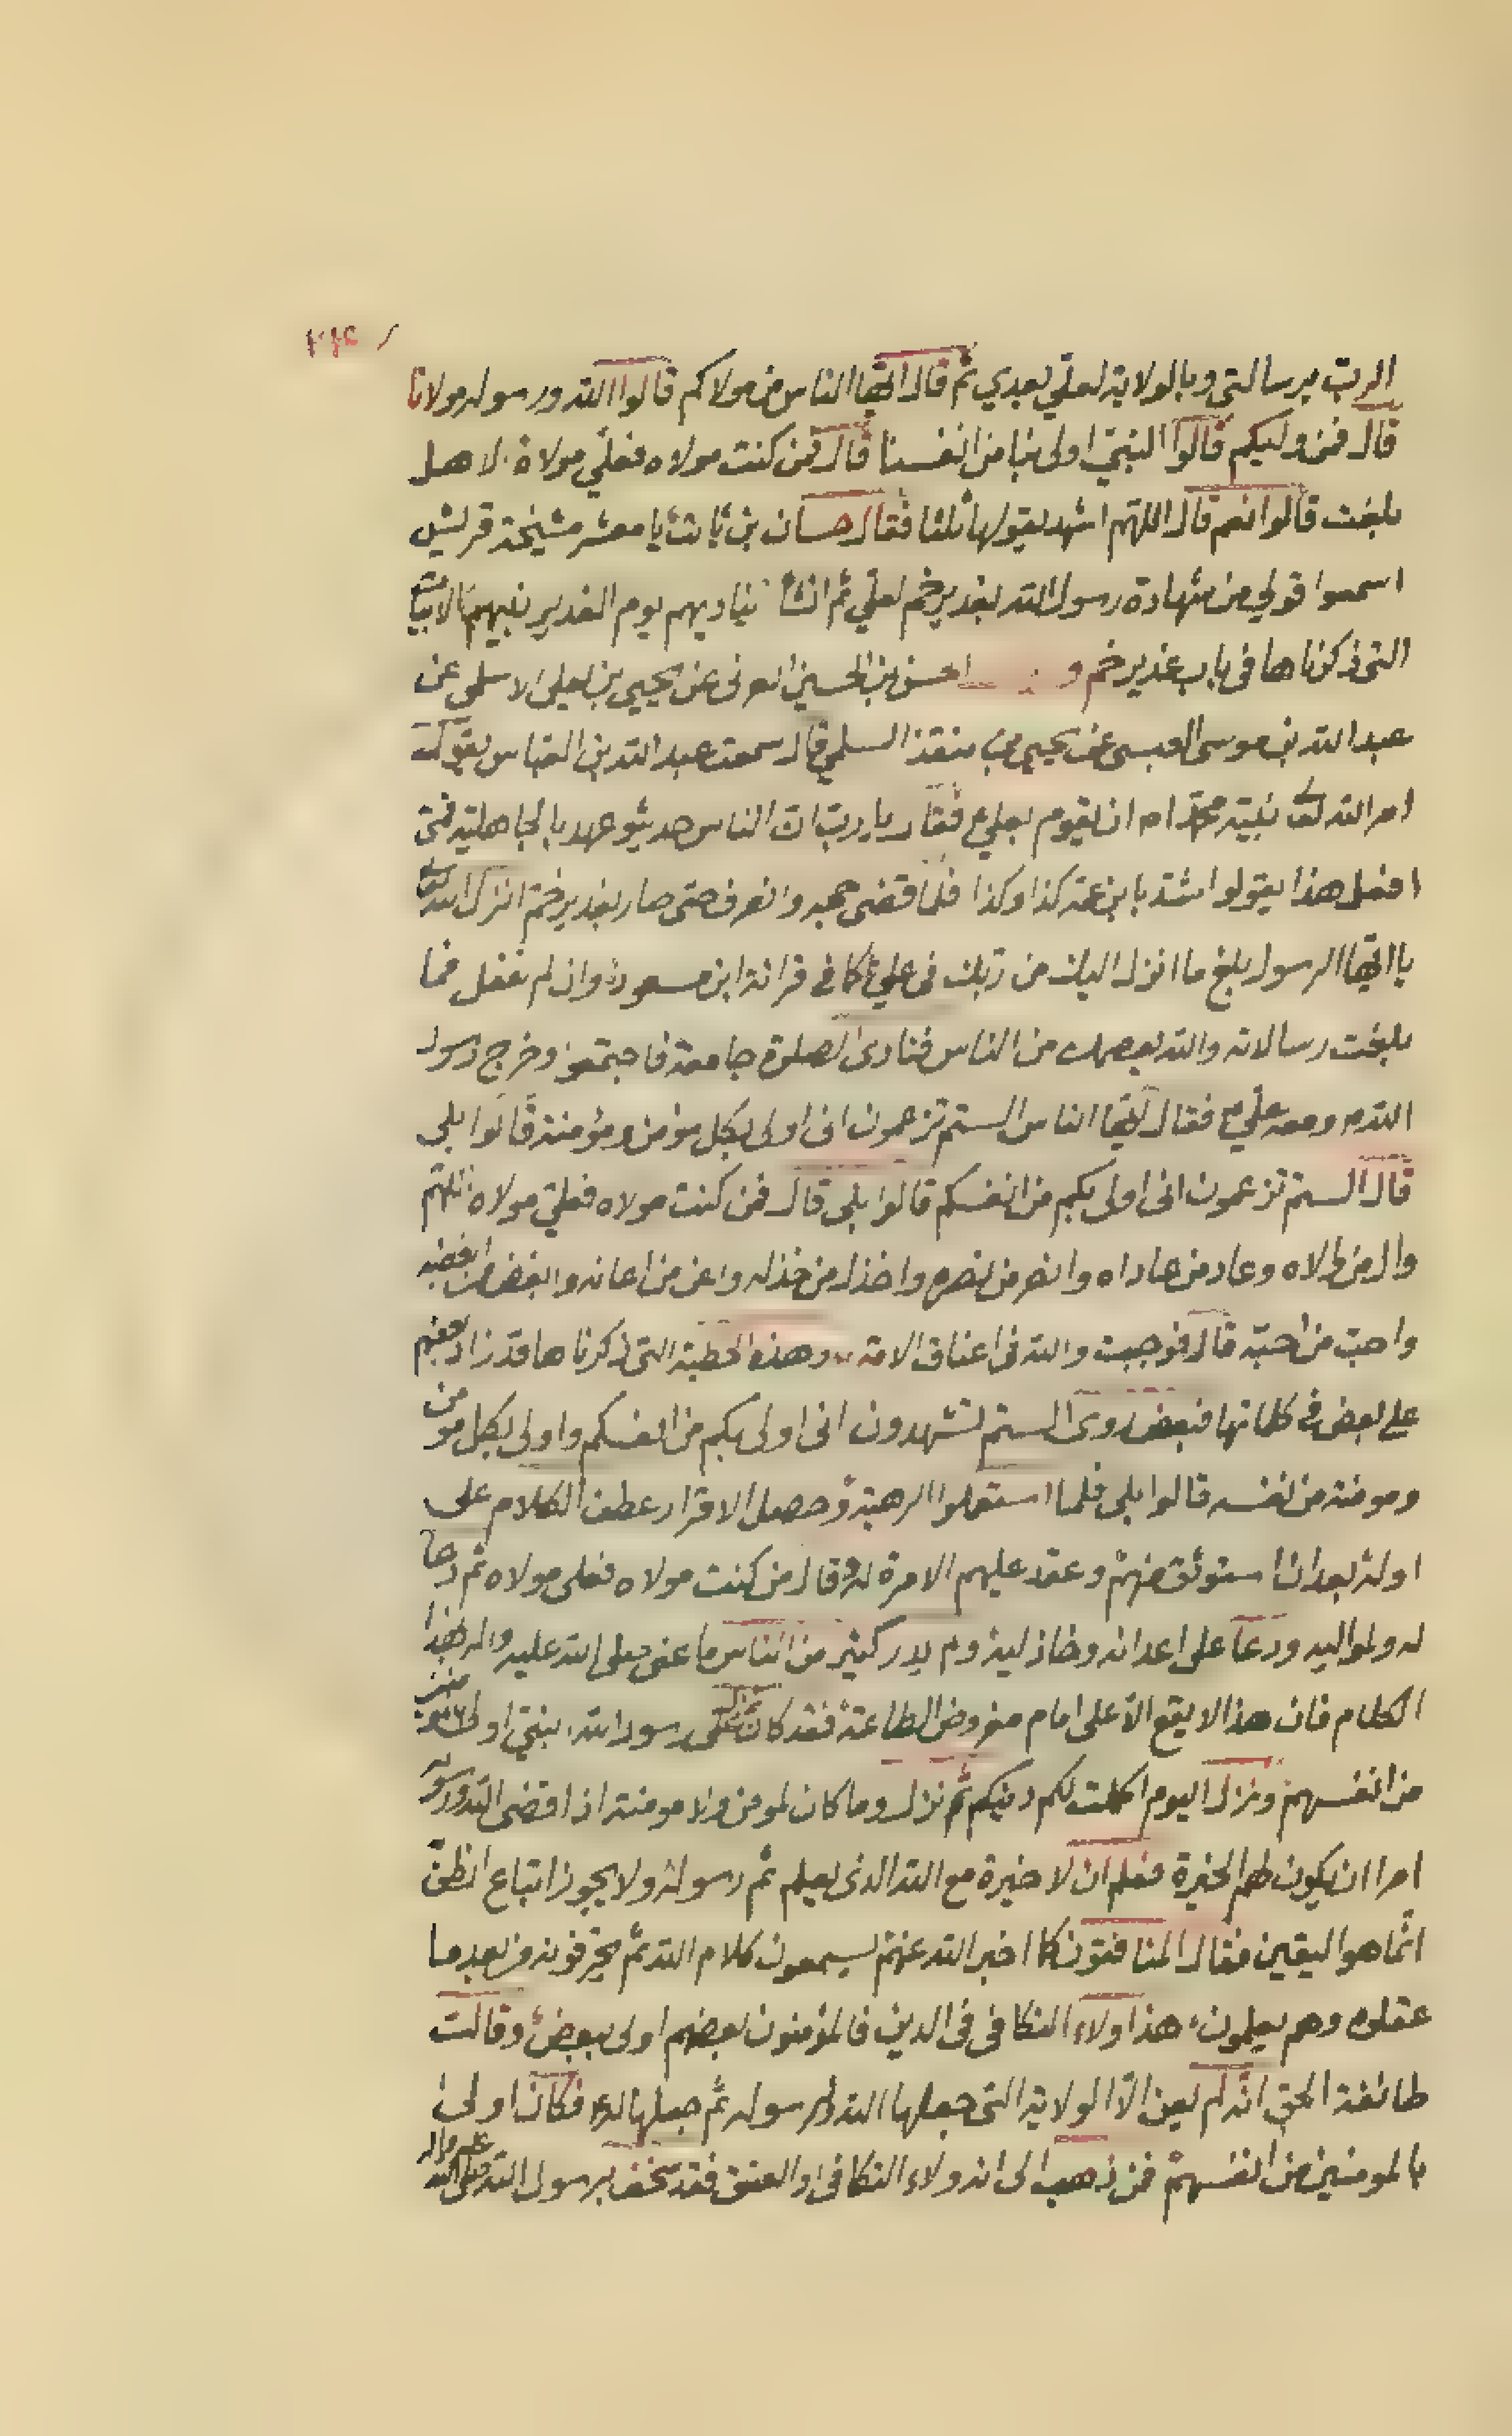 الرب برسالتي وبالولاية لعلي بعدي ثم قال ايها الناس من مولاكم قالوا الله ورسوله مولانا
قال فمن وليكم قالوا النبي اولى بنا من انفسنا قال فمن كنت مولاه فعلي مولاه الا هل
بلغت قالوا نعم قال اللهم اشهد يقولها ثلثا فقال حسان بن ثابت يا معشر مشيخة قريش
اسمعوا قولي من شهادة رسول الله بغدير خم لعلي ثم انشأ يناديهم يوم الغدير نبيهم الابيات
التي ذكرناها في باب غدير خم و الحسن بن الحسين العرني عن يحيى بن يعلى الاسلمي عن
عبد الله بن موسى العبسي عن يحيى بن منقذ السلمي قال سمعت عبد الله بن العباس يقول
امر الله تعالى نبيه محمدا ص ان يقوم بعلي ع فقال يا رب ان الناس حديثو عهد بالجاهلية فمتى
افعل هذا يقولوا بابن عمه كذا وكذا فلما قضى حجه وانصرف حتى صار بغدير خم انزل الله تعالى
يا ايها الرسول بلغ ما انزل اليك من ربك في علي كما في قرائة ابن مسعود وان لم تفعل فما
بلغت رسالاته والله يعصمك من الناس فنادى الصلوة جامعة فاجتمعوا وخرج رسول
الله ص ومعه علي ع فقال ايها الناس الستم تزعمون اني اولى بكل مؤمن ومؤمنة قالوا بلى
قال الستم تزعمون اني اولى بكم من انفسكم قالوا بلى قال فمن كنت مولاه فعلي مولاه اللهم
وال من والاه وعاد من عاداه وانصر من نصره واخذل من خذله واعن من اعانه وابغض من ابغضه
واحب من احبه قال فوجبت والله في اعناق الامة وهذه الخطبة التي ذكرناها قد زاد بعضهم
على بعض في كلماتها فبعض روى الستم تشهدون اني اولى بكم من انفسكم واولى بكل مومن
ومومنة من نفسه قالوا بلى فلما استعملوا الرهبة وحصل الاقرار عطف الكلام على
اوله بعد ان استوثق منهم وعقد عليهم الامرة له وقال من كنت مولاه فعلي مولاه ثم دعا
له ولمواليه ودعا على اعدائه وخاذليه ولم يدر كثير من الناس ما عنى صلى الله عليه واله بهذا
الكلام فان هذا لا يقع الا على امام مفروض الطاعة فقد كان رسول الله النبي اولى بالمؤمنين
من انفسهم ونزل اليوم اكملت لكم دينكم ثم نزل وما كان لمومن ولا مومنة اذا قضى الله ورسوله
امرا ان يكون لهم الخيرة فعلم ان لا خيرة مع الله الذي يعلم ثم رسوله ولا يجوز اتباع الظن
انما هو اليقين فقال المنافقون كما اخبر الله عنهم يسمعون كلام الله ثم يحرفونه من بعد ما
عقلوه وهم يعلمون هذا ولاء التكافي في الدين فالمؤمنون بعضهم اولى ببعض وقالت
طائفة الحق انه لم يعن الا الولاية التي جعلها الله لرسوله ثم جعلها له فكان اولى
بالمومنين من انفسهم فمن ذهب الى انه ولاء التكافي او العتق فقد سخف برسول الله صلى الله عليه واله